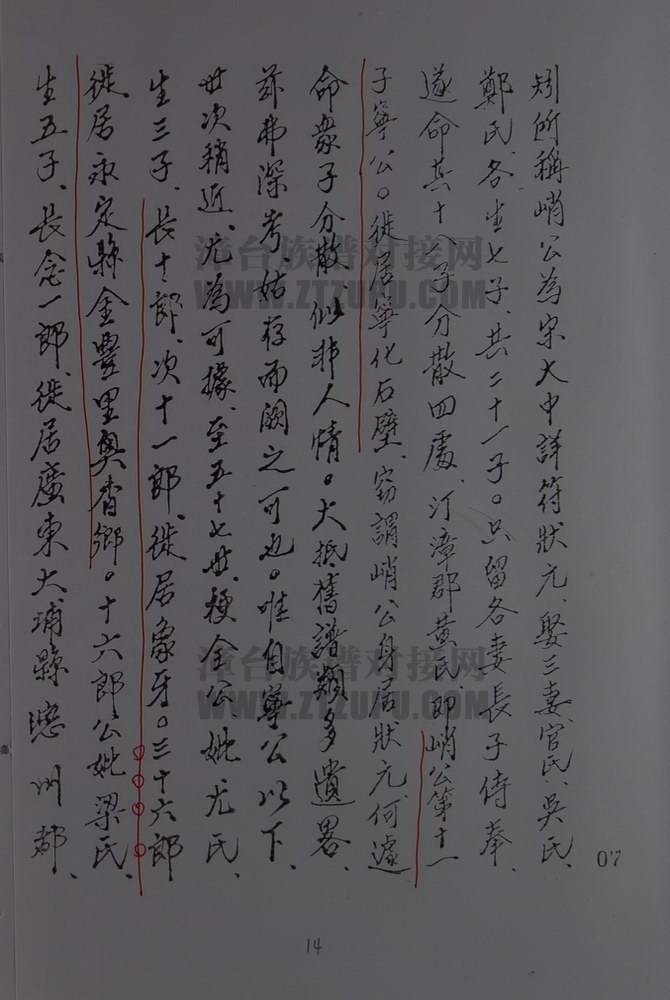 矧所稱峭公為宋大中詳符狀元、娶三妻、官氏、吳氏、
鄭氏、各生七子、共二十一子。只留各妻長子侍奉、
遂命其十八子分散四處、汀漳郡黃氏、即峭公第十一
子寧公。徙居寧化石壁、竊謂峭公身居狀元、何遽
命眾子分散、似非人情。大抵舊譜類多遺畧、
茲弗深考、姑存而闕之可也。唯自寧公以下、
世次稍近、尤為可據、至五十七世、梗全公、妣尤氏、
生三子、長十郎、次十一郎、徙居象牙。三十六郎
徙居永定縣金豐里奧杳鄉。十六郎公妣梁氏、
生五子、長念一郎、徙居廣東大埔縣 州都、
07
14
漳台族谱对接网
WWW.ZTZUPU.COM
漳台族谱对接网
WWW.ZTZUPU.COM